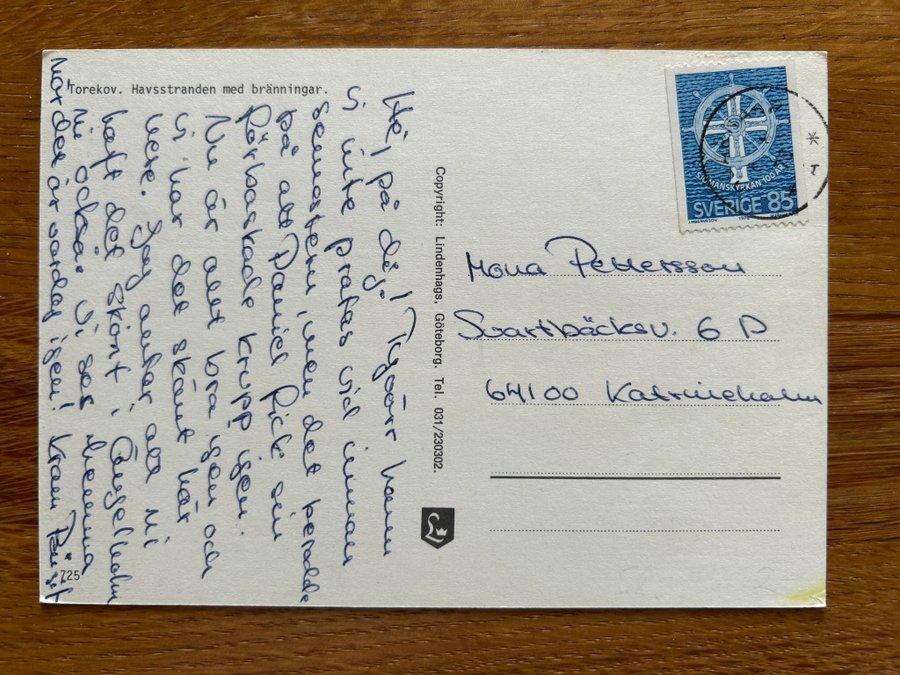 Torekov. Havsstranden med bränningar.
Hej på dig! Tyvärr hann
vi inte pratas vid innan
semestern, men det berodde
på att Daniel fick sin
förbaskade krupp igen.
Nu är allt bra igen och
vi har det skönt här
nere. Jag antar att ni
haft det skönt i Ängelholm
ni också. Vi ses hemma
när det är vardag igen! Kram
725
Copyright: Lindenhags, Göteborg. Tel. 031/230302.
SJÖMANSKYRKAN 100 ÅR
SVERIGE 85
Mona Pettersson
Svartbäcksv. 6 D
64100 Katrineholm